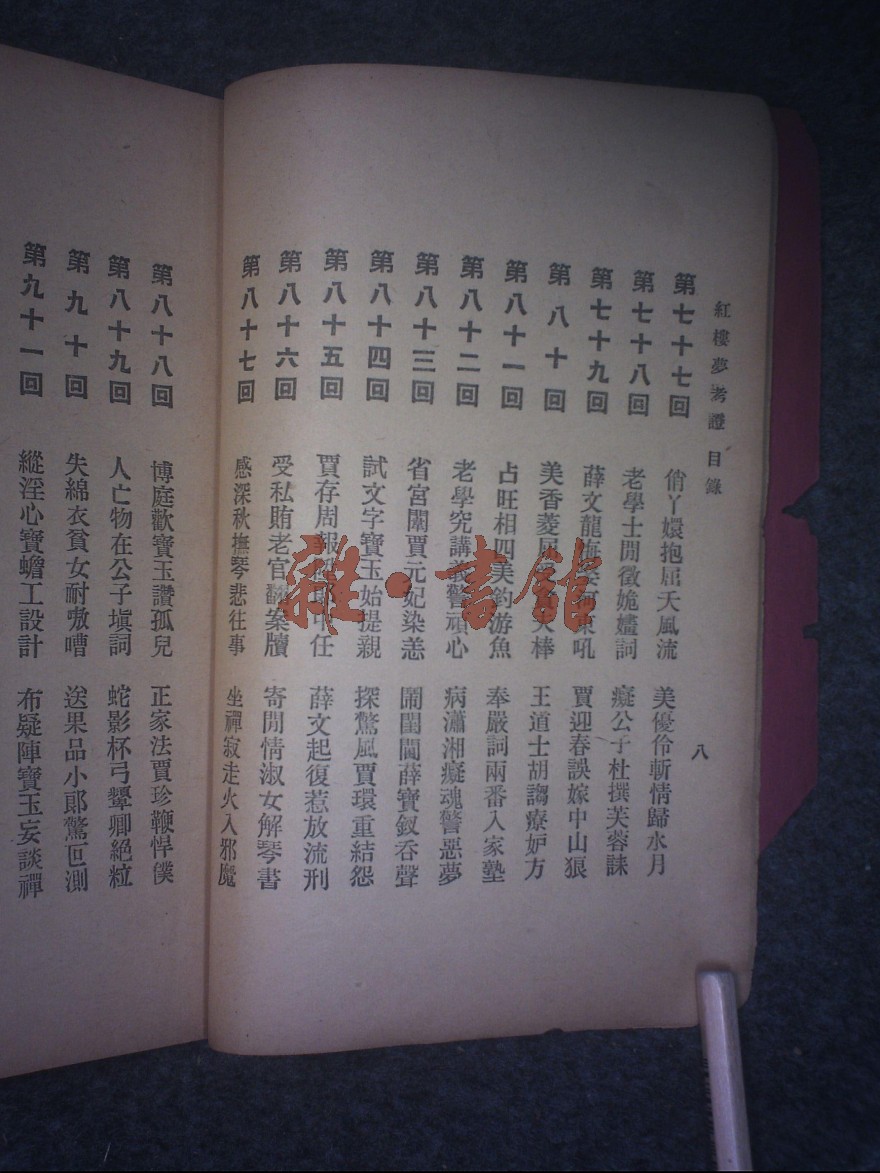 紅樓夢考證 目錄
八
第七十七回 俏丫嬛抱屈夭風流 美優伶斬情歸水月
第七十八回 老學士閒徵姽嫿詞 癡公子杜撰芙蓉誄
第七十九回 薛文龍悔娶河東吼 賈迎春誤嫁中山狼
第八十回 美香菱屈夫棒 王道士胡謅療妒方
第八十一回 占旺相四美釣游魚 奉嚴詞兩番入家塾
第八十二回 老學究講義警頑心 病瀟湘癡魂警惡夢
第八十三回 省宮闈賈元妃染恙 鬧閨閫薛寶釵吞聲
第八十四回 試文字寶玉始提親 探驚風賈環重結怨
第八十五回 賈存周報中任 薛文起復惹放流刑
第八十六回 受私賄老官翻案牘 寄閒情淑女解琴書
第八十七回 感深秋撫琴悲往事 坐禪寂走火入邪魔
第八十八回 博庭歡寶玉讚孤兒 正家法賈珍鞭悍僕
第八十九回 人亡物在公子塡詞 蛇影杯弓顰卿絕粒
第九十回 失綿衣貧女耐嗷嘈 送果品小郞驚叵測
第九十一回 縱淫心寶蟾工設計 布疑陣寶玉妄談禪
雜·書館